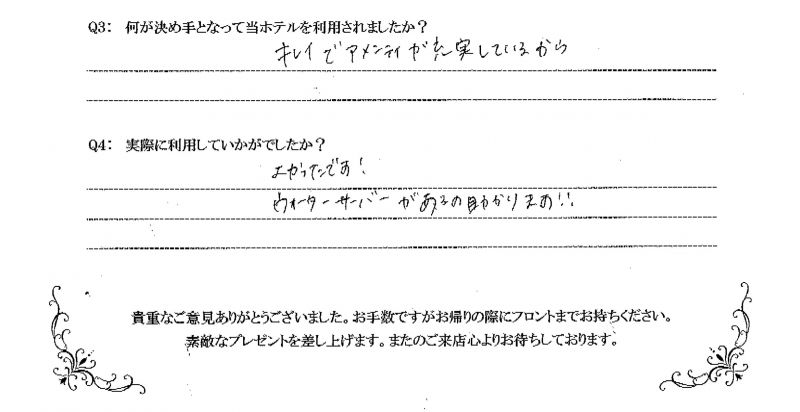 Q3: 何が決め手となって当ホテルを利用されましたか？
キレイでアメニティが充実しているから
Q4: 実際に利用していかがでしたか？
よかったです!
ウォーターサーバーがあるの助かります!!
貴重なご意見ありがとうございました。お手数ですがお帰りの際にフロントまでお持ちください。
素敵なプレゼントを差し上げます。またのご来店心よりお待ちしております。